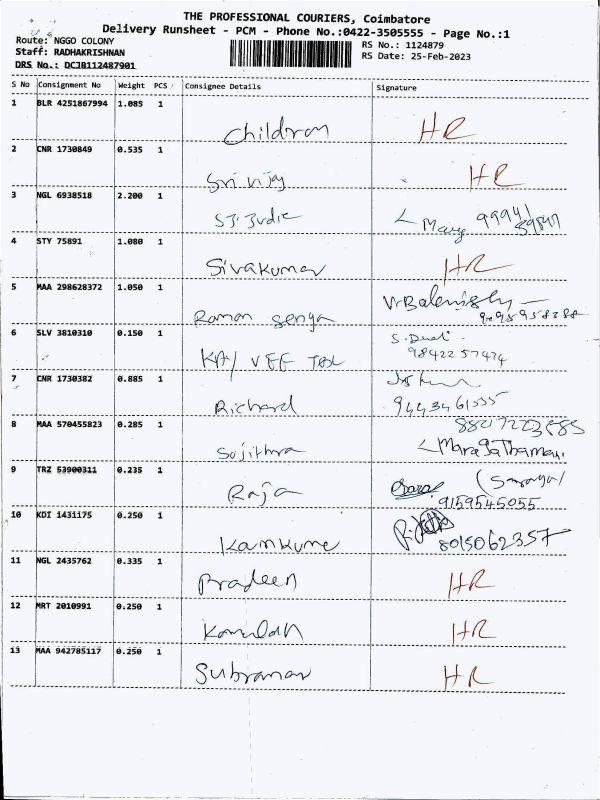 THE PROFESSIONAL COURIERS, Coimbatore
Delivery Runsheet - PCM - Phone No.:0422-3505555 - Page No.:1
Route: NGGO COLONY
RS No.: 1124879
Staff: RADHAKRISHNAN
RS Date: 25-Feb-2023
DRS No.: DCJB112487901
S No Consignment No Weight PCS Consignee Details Signature
1 BLR 4251867994 1.085 1
Children HR
2 CNR 1730849 0.535 1
Sri vijay HR
3 NGL 6938518 2.200 1
Mary
4 STY 75891 1.080 1
Sivakumar HR
5 MAA 298628372 1.050 1
Raman
6 SLV 3810310 0.150 1
98422 57474
7 CNR 1730382 0.885 1
Richard 94434 61555
8 MAA 570455823 0.285 1
Sujithra
9 TRZ 53900311 0.235 1
Raja 9159545055
10 KDI 1431175 0.250 1
8015062357
11 NGL 2435762 0.335 1
Pradeen HR
12 MRT 2010991 0.250 1
HR
13 MAA 942785117 0.250 1
Subraman HR